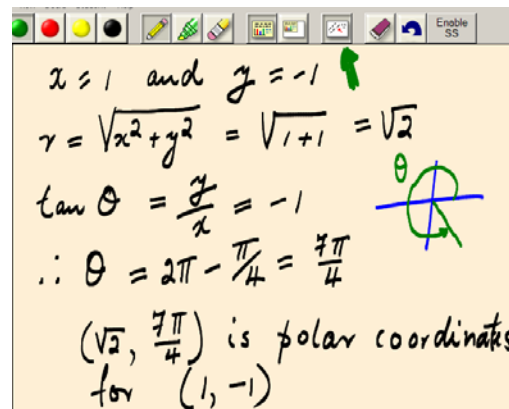 Enable
SS
x = 1 and y = -1
r = √(x² + y²) = √(1+1) = √2
θ
tan θ = y/x = -1
∴ θ = 2π - π/4 = 7π/4
(√2, 7π/4) is polar coordinates
for (1, -1)